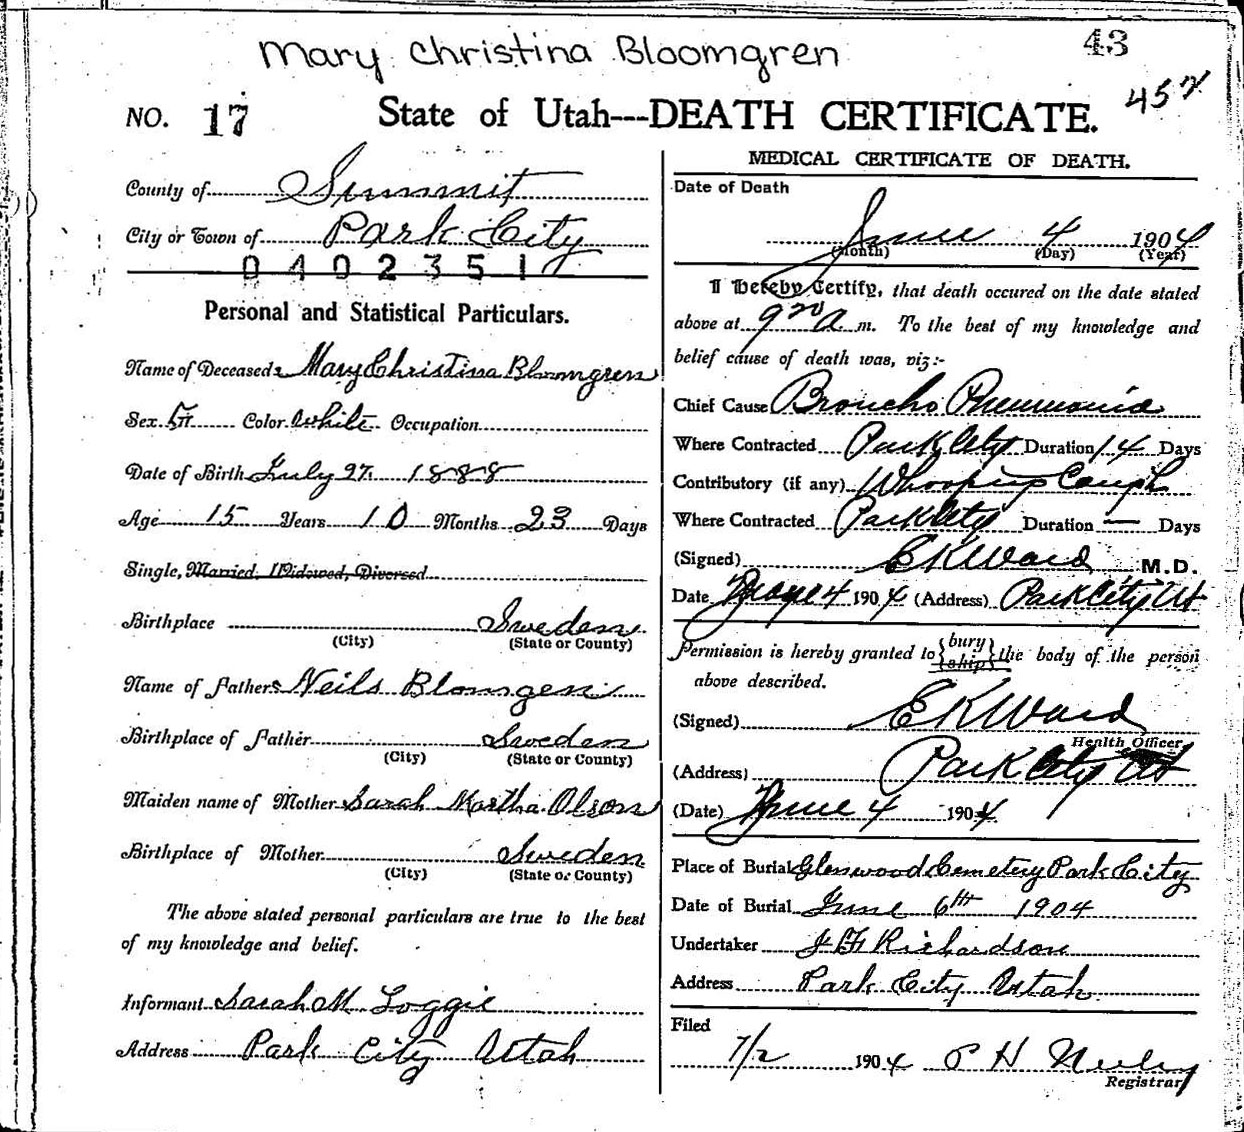 Mary Christina Bloomgren
43
457
NO. 17 State of Utah---DEATH CERTIFICATE.
County of Summit
City or Town of Park City
0402351
Personal and Statistical Particulars.
Name of Deceased Mary Christina Blomgren
Sex F Color White Occupation
Date of Birth July 27. 1888
Age 15 Years 10 Months 23 Days
Single, Married, Widowed, Divorced
Birthplace Sweden
(City) (State or County)
Name of Father Neils Blomgen
Birthplace of Father Sweden
(City) (State or County)
Maiden name of Mother Sarah Martha Olson
Birthplace of Mother Sweden
(City) (State or County)
The above stated personal particulars are true to the best
of my knowledge and belief.
Informant Sarah M Loggie
Address Park City Utah
MEDICAL CERTIFICATE OF DEATH.
Date of Death
June 4 1904
(Month) (Day) (Year)
I Hereby Certify, that death occured on the date stated
above at 9 A m. To the best of my knowledge and
belief cause of death was, viz:-
Chief Cause Broncho Pneumonia
Where Contracted Park City Duration 14 Days
Contributory (if any) Whooping Cough
Where Contracted Park City Duration — Days
(Signed) E K Ward M.D.
Date June 4 1904 (Address) Park City Ut
Permission is hereby granted to {bury ship} the body of the person
above described.
(Signed) E K Ward
Health Officer
(Address) Park City Ut
(Date) June 4 1904
Place of Burial Glenwood Cemetery Park City
Date of Burial June 6th 1904
Undertaker Richardson
Address Park City Utah.
Filed
7/2 1904 P H
Registrar